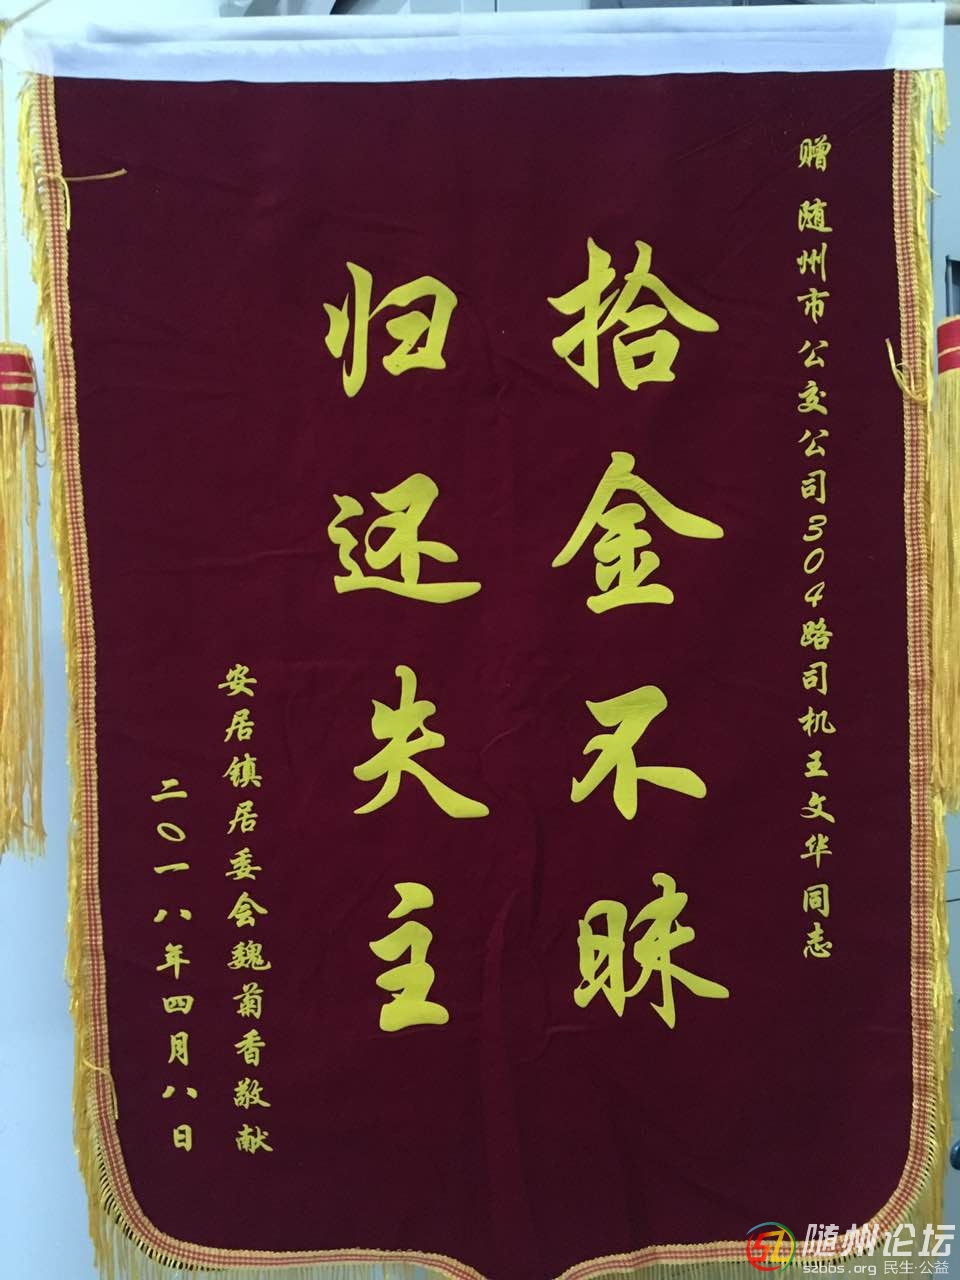 赠 随州市公交公司304路司机王文华同志
拾金不昧
归还失主
安居镇居委会魏菊香敬献
二〇一八年四月八日
随州论坛
szbbs.org 民生·公益